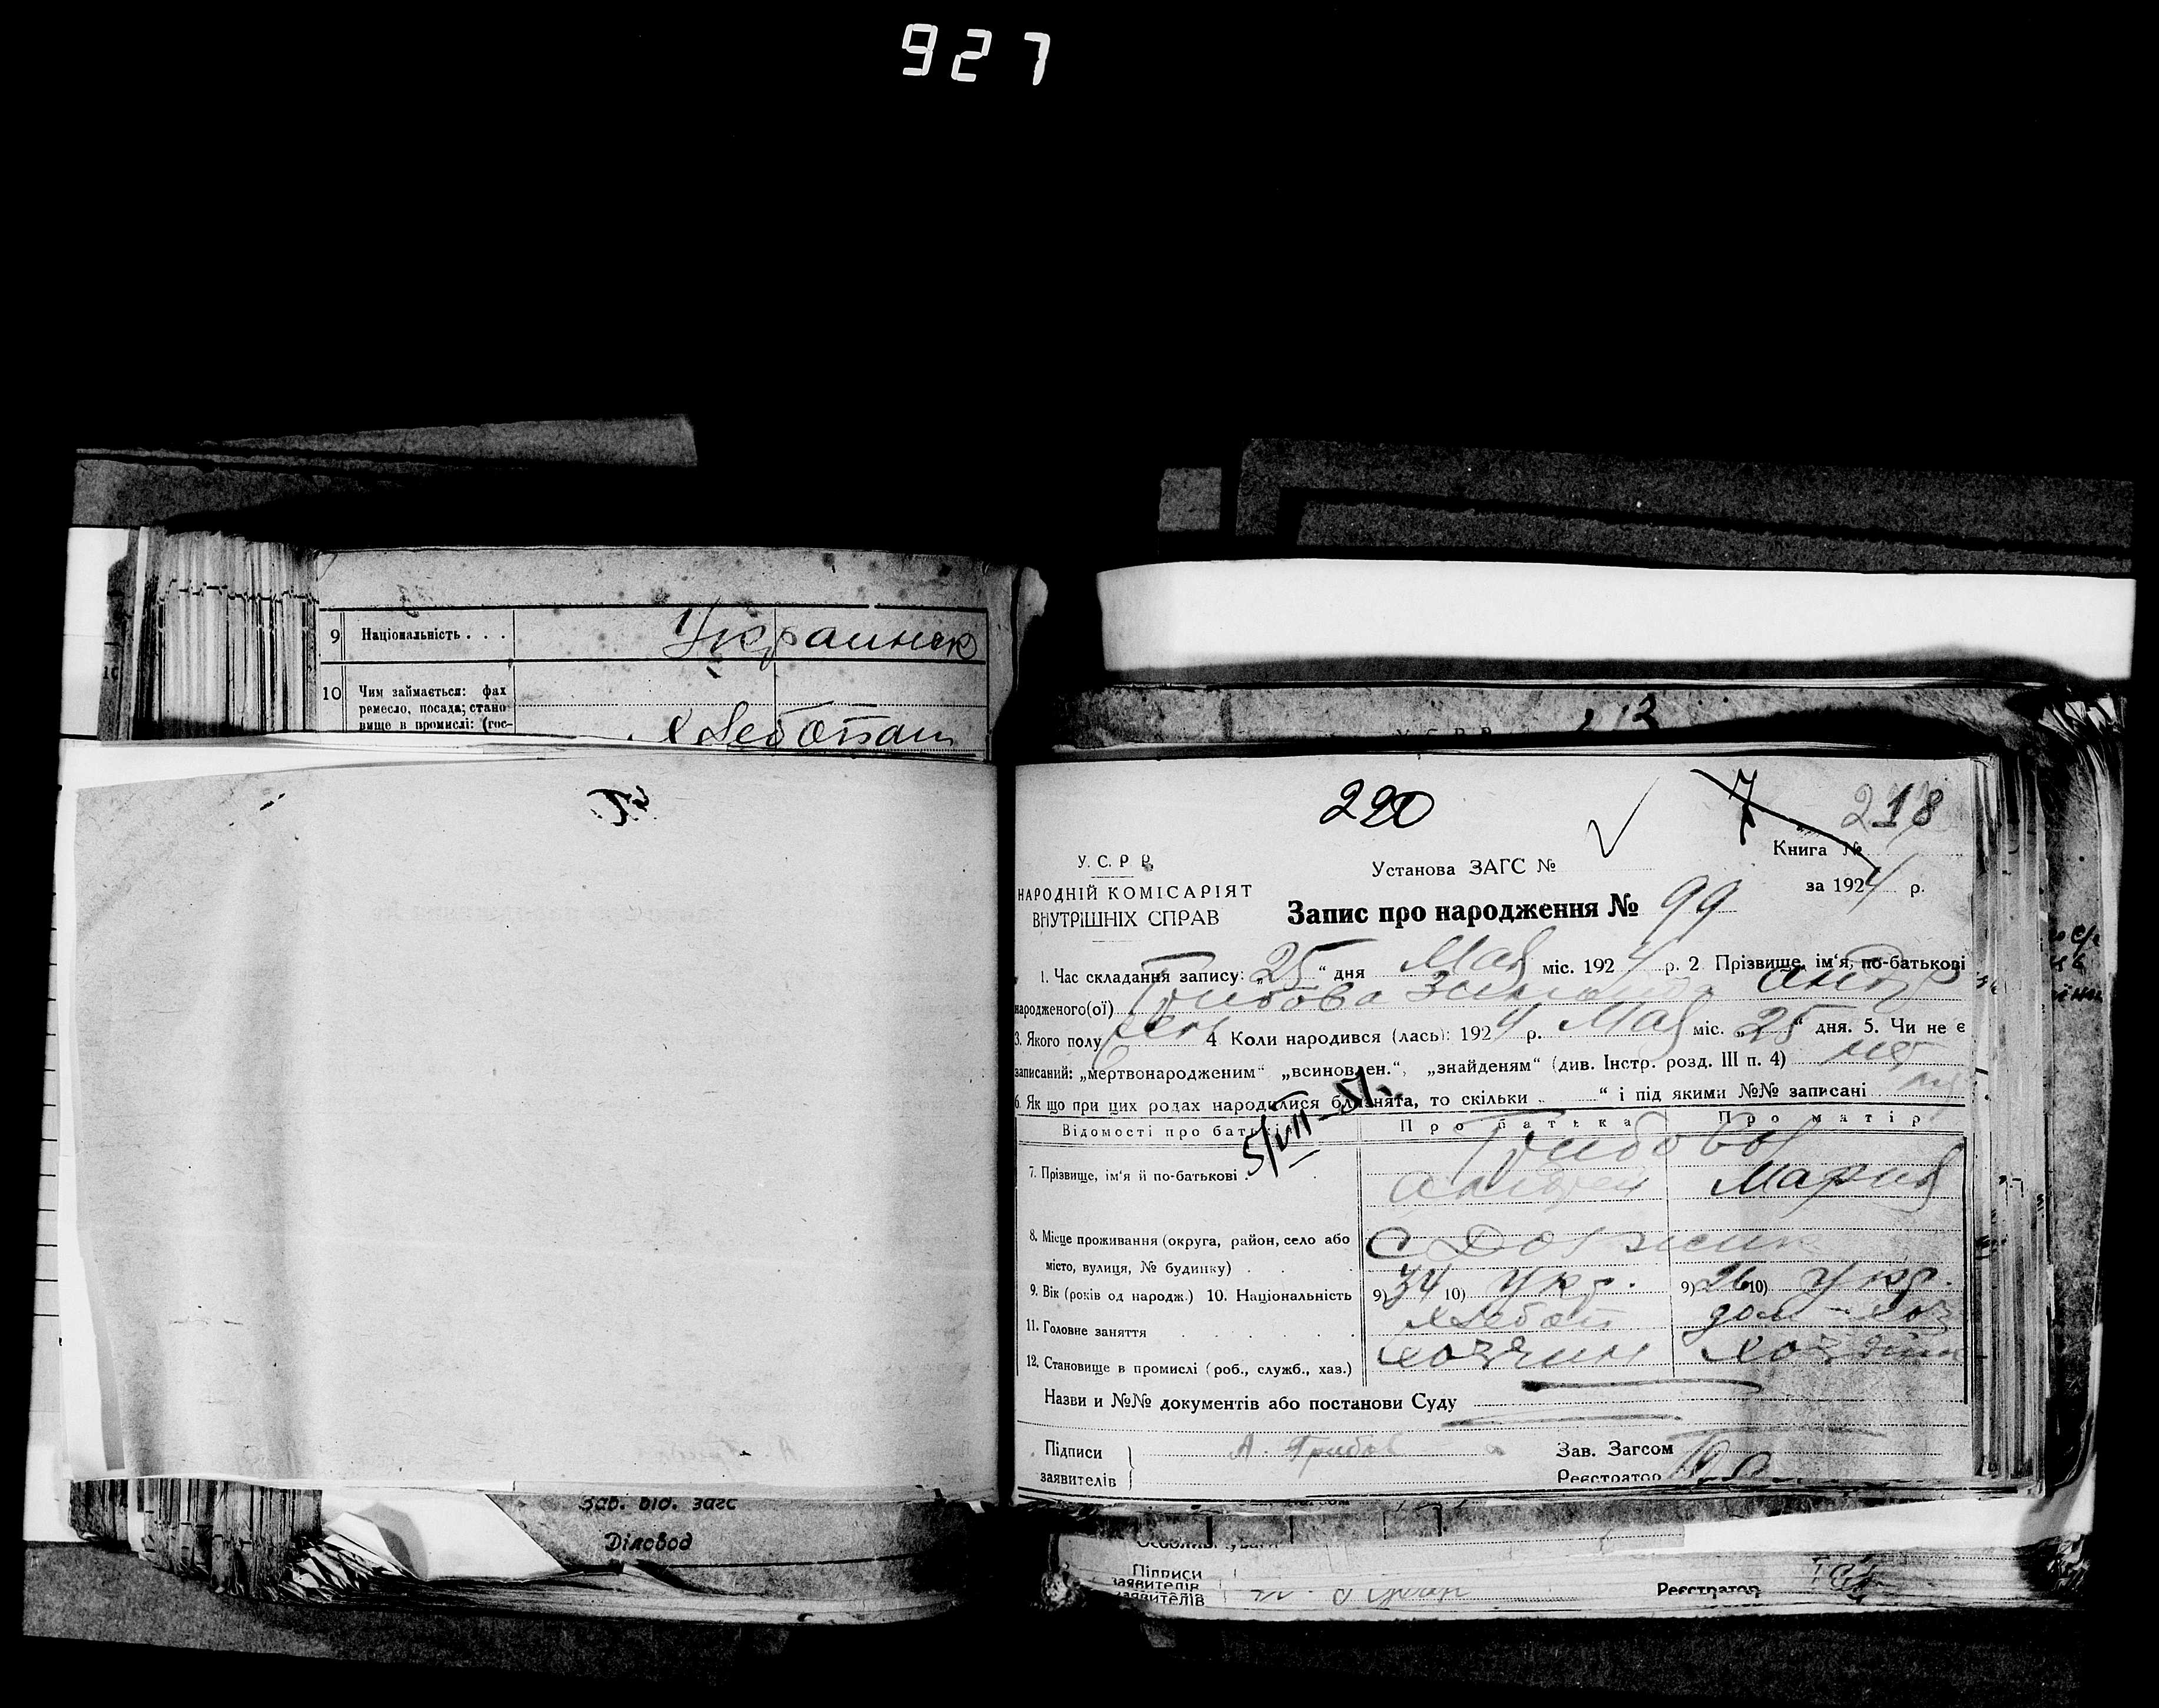 927
9 Національність . . . Украинск
10 Чим займається: фах
ремесло, посада; стано
вище в промислі: (гос-
Хлебопаш
Зав. від. загс
Діловод
220
7 218
У. С. Р. Р.
Установа ЗАГС №
Книга №
НАРОДНІЙ КОМІСАРІЯТ
за 1924 р.
ВНУТРІШНІХ СПРАВ
Запис про народження № 99
1. Час складання запису: „25“ дня Мая міс. 1924 р. 2 Прізвище, ім'я, по-батькові
народженого(ої) Грибова Зинаида Андр
3. Якого полу жен 4. Коли народився (лась): 1924 р. Мая міс. „25“ дня. 5. Чи не є
записаний: „мертвонародженим“ „всиновлен.“, „знайденям“ (див. Інстр. розд. III п. 4) нет
6. Як що при цих родах народилися близнята, то скільки „ “ і під якими №№ записані
5/VII-51.
Відомості про батьків Про батька Про матір
Грибовы
7. Прізвище, ім'я й по-батькові . Андрей Мария
8. Місце проживання (округа, район, село або С Должик
місто, вулиця, № будинку)
9. Вік (років од народж.) 10. Національність 9) 34 10) Укр. 9) 26 10) Укр.
11. Головне заняття хлебоп дом-хоз
12. Становище в промислі (роб., служб., хаз.) хозяин хозяйка
Назви и №№ документів або постанови Суду
Підписи А. Грибов Зав. Загсом
заявителів Реєстратор
Підписи
заявителів
заявителів
Реєстратор